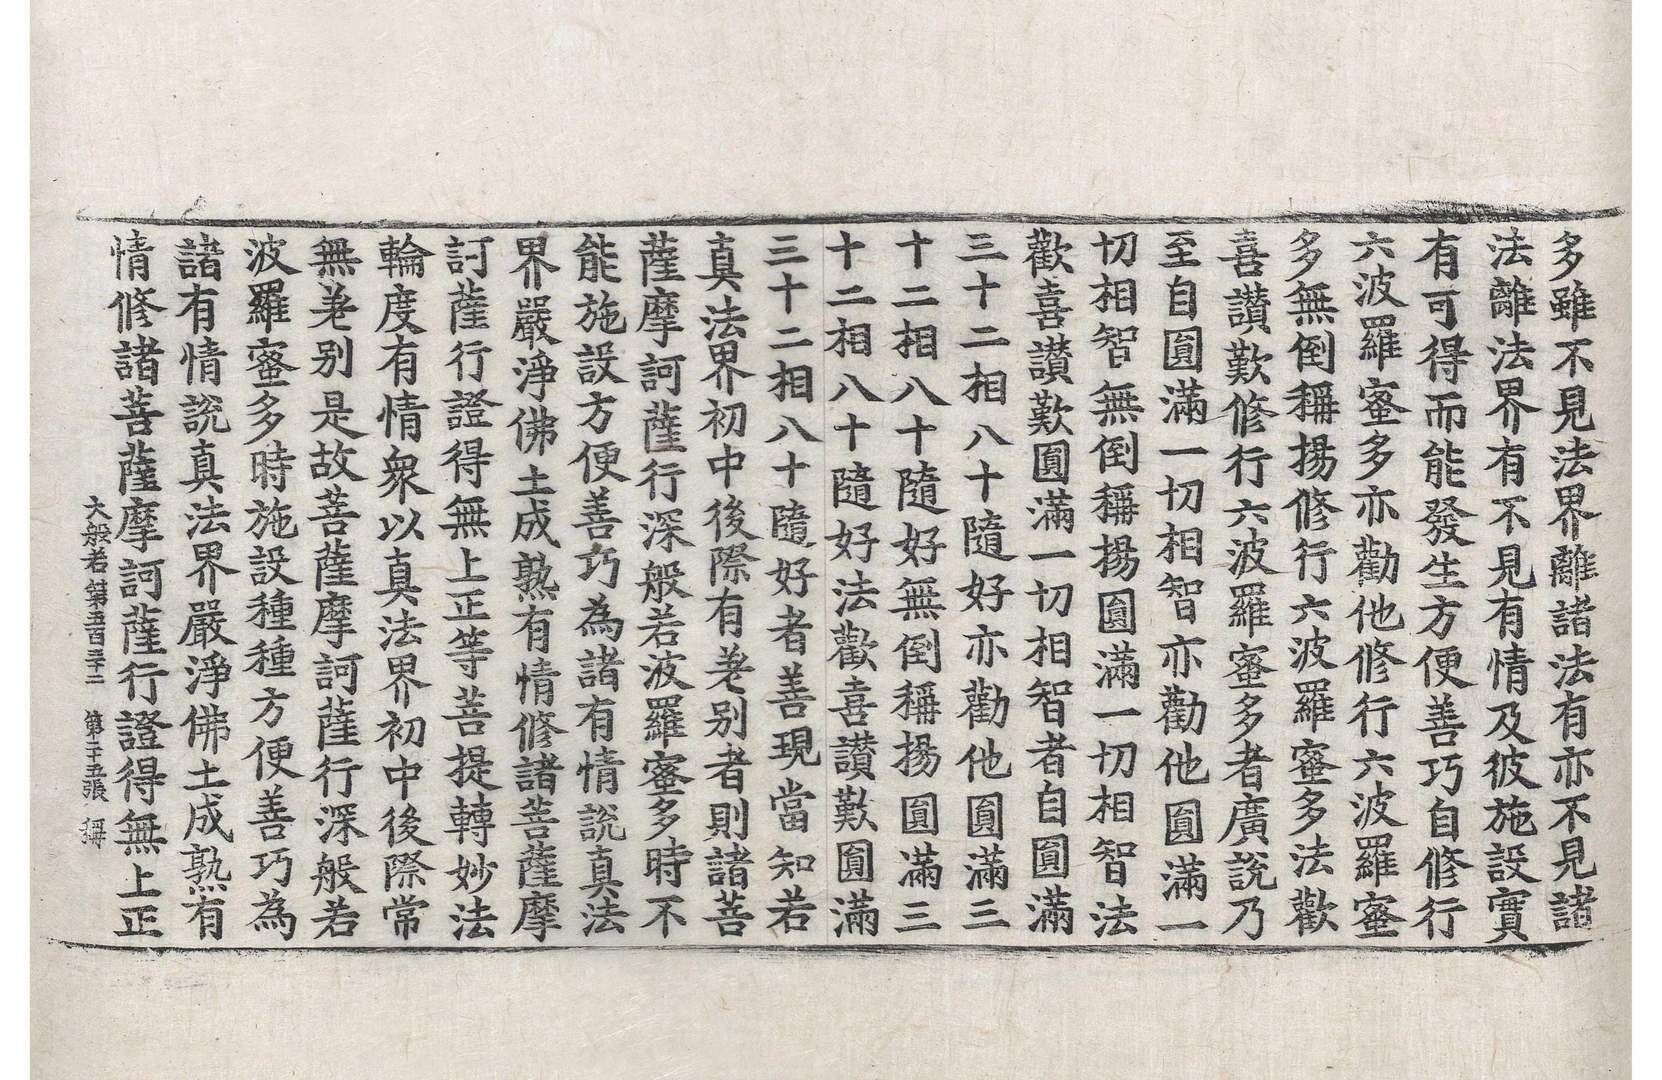 多雖不見法界離諸法有亦不見諸
法離法界有不見有情及彼施設實
有可得而能發生方便善巧自修行
六波羅蜜多亦勸他修行六波羅蜜
多無倒稱揚修行六波羅蜜多法歡
喜讃歎修行六波羅蜜多者廣說乃
至自圓滿一切相智亦勸他圓滿一
切相智無倒稱揚圓滿一切相智法
歡喜讃歎圓滿一切相智者自圓滿
三十二相八十隨好亦勸他圓滿三
十二相八十隨好無倒稱揚圓滿三
十二相八十隨好法歡喜讃歎圓滿
三十二相八十隨好者善現當知若
真法界初中後際有差别者則諸菩
薩摩訶薩行深般若波羅蜜多時不
能施設方便善巧為諸有情說真法
界嚴淨佛土成熟有情修諸菩薩摩
訶薩行證得無上正等菩提轉妙法
輪度有情衆以真法界初中後際常
無差别是故菩薩摩訶薩行深般若
波羅蜜多時施設種種方便善巧為
諸有情說真法界嚴淨佛土成熟有
情修諸菩薩摩訶薩行證得無上正
大般若第五百三十二 第二十五張 稱